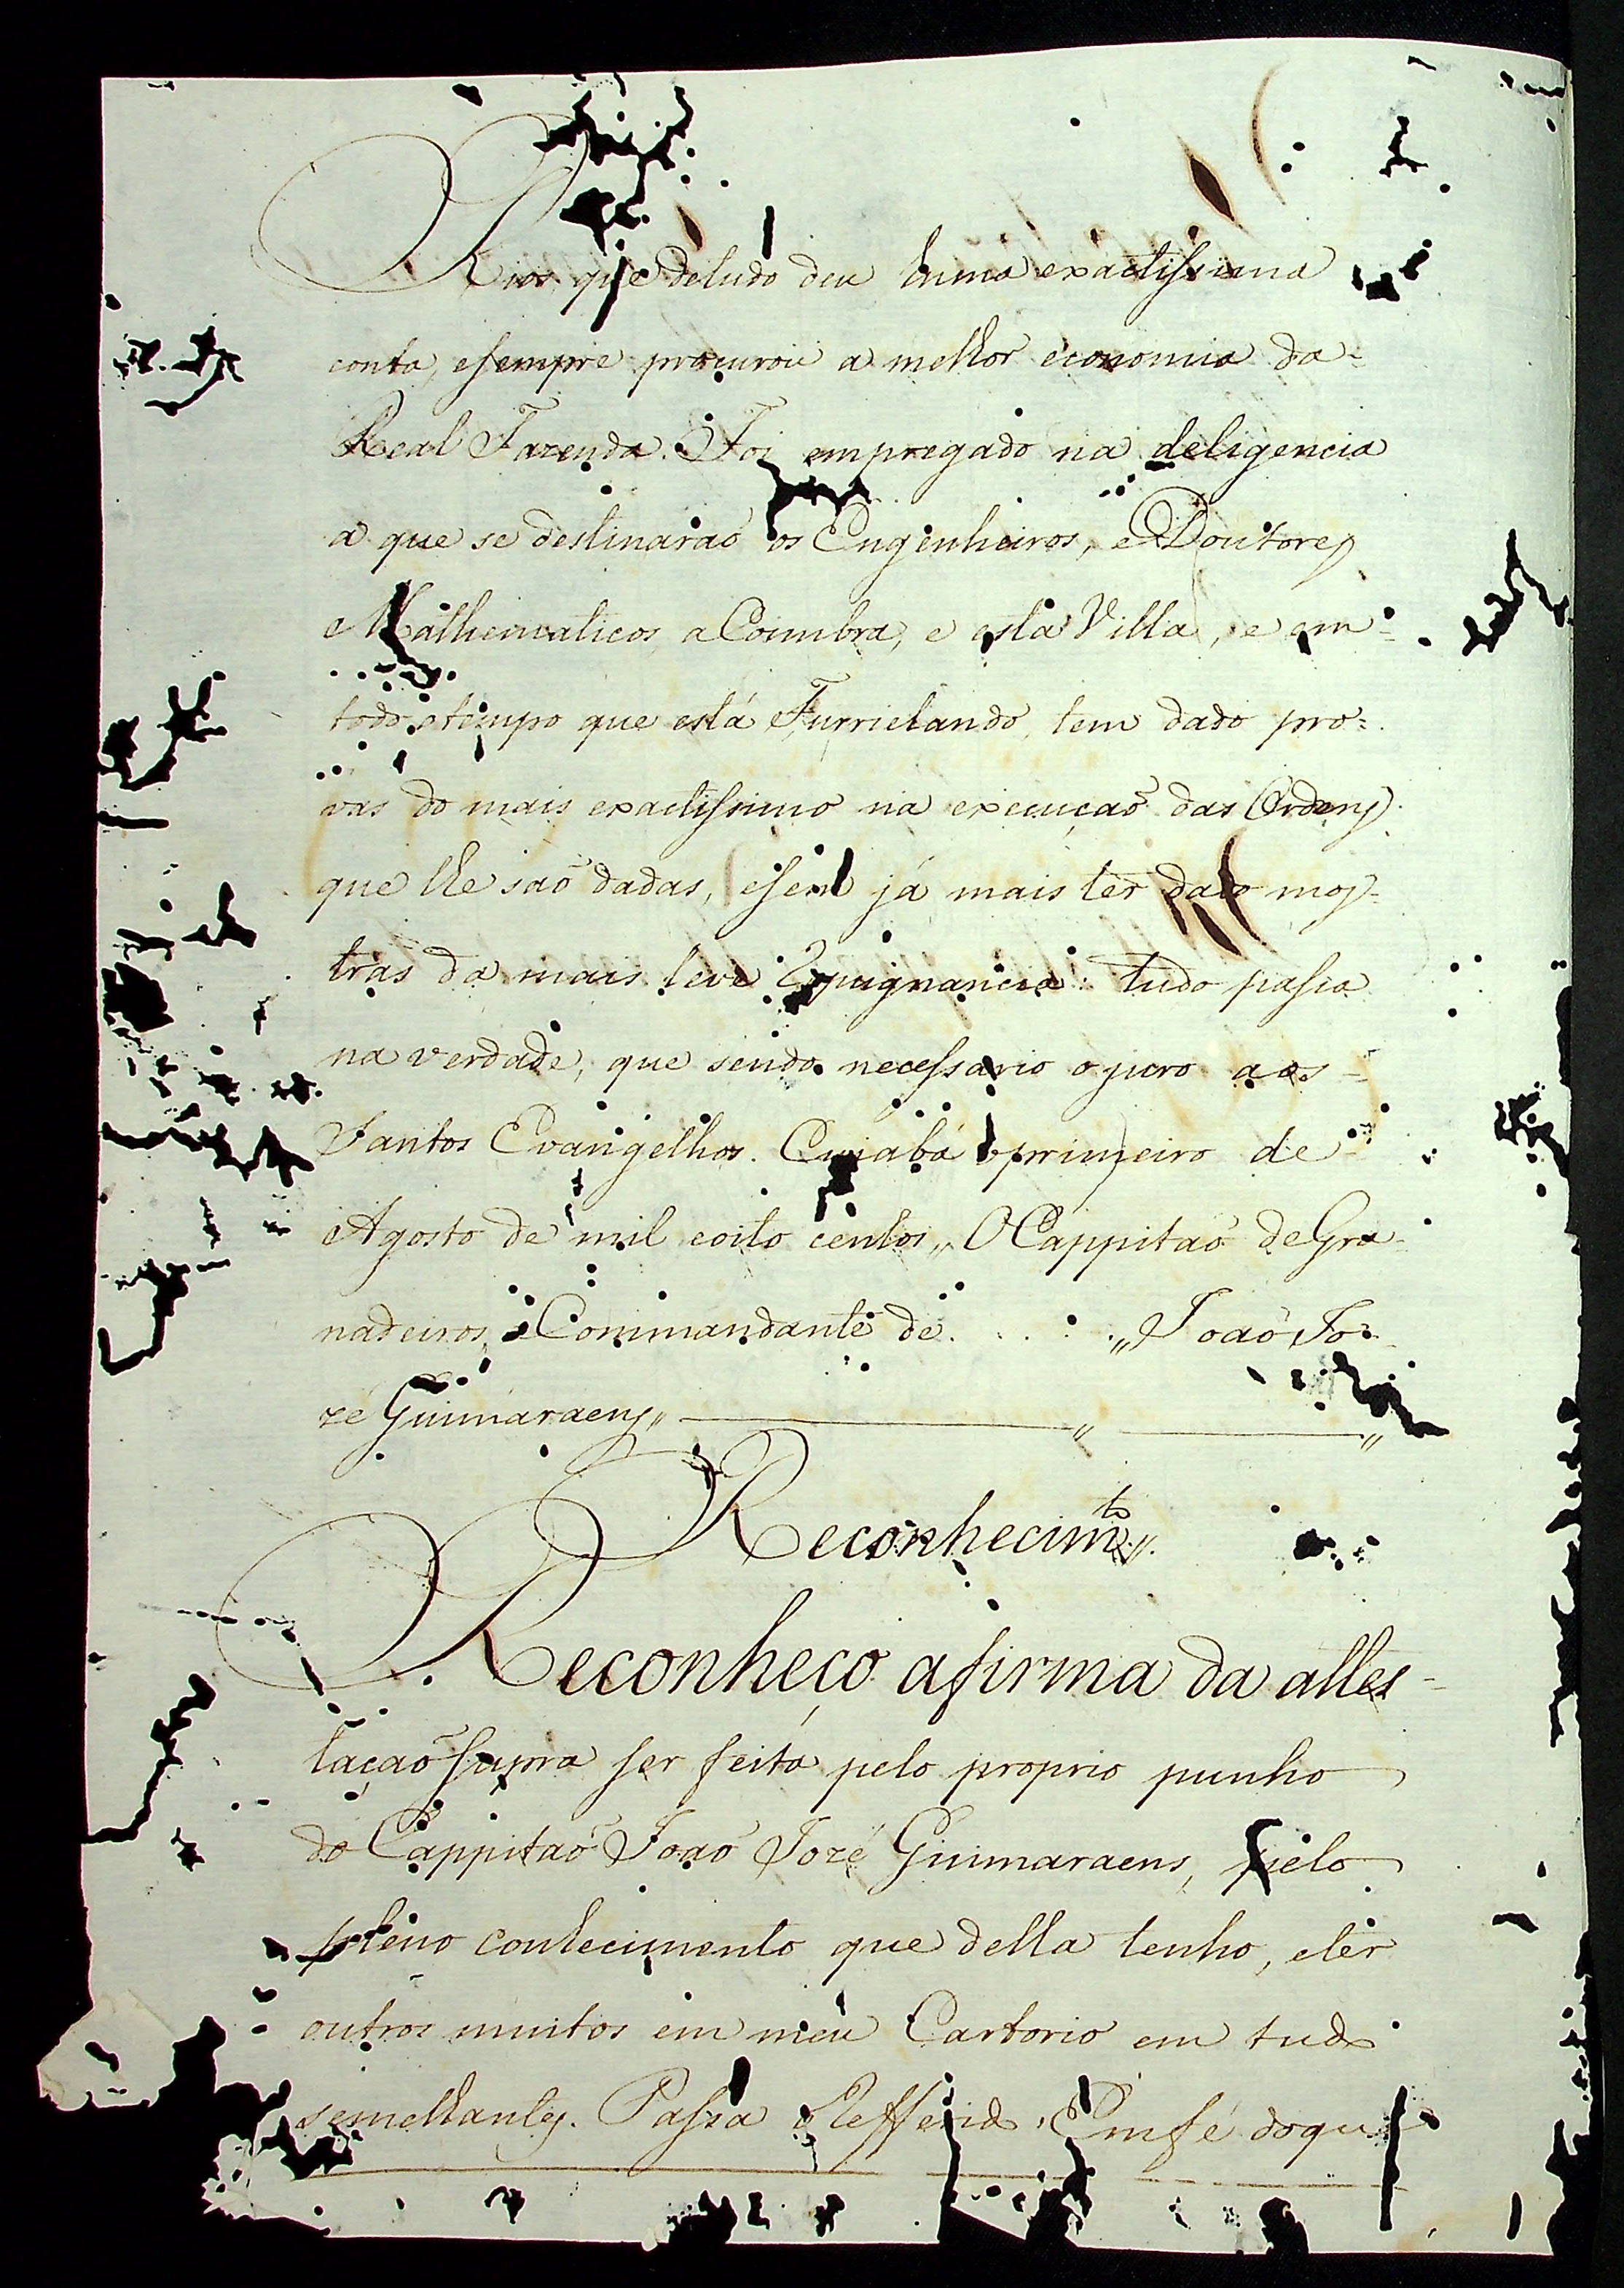 Rios, que detudo deu huma exactissima
conta, esempre procurou a melhor economia da=
Real Fazenda. Foi empregado na deligencia
a que se destinaraõ os Engenheiros, e Doutores
e Mathematicos, a Coimbra, e esta Villa, e em=
todo otempo que está Furrielando, tem dado pro=
vas do mais exactissimo na execuçaõ das Ordens
que lhe saõ dadas, esem já mais ter dado mos=
tras da mais leve Repugnancia: tudo passa
na verdade, que sendo necessario o juro aos=
Santos Evangelhos. Cuiabá oprimeiro de
Agosto de mil eoito centos,, O Cappitaõ de Gra=
nadeiros, e Commandante de . . . . ,, Joaõ Jo=
zé Guimaraens,, ,, ,,
Reconhecim.to,,
Reconheço afirma da attes=
taçaõ supra ser feita pelo proprio punho
do Cappitaõ Joaõ Jozé Guimaraens, pelo
pleno conhecimento que della tenho, eter
outros muitos em meu Cartorio em tudo
semelhantes. Passa o Refferido. Emfé doque